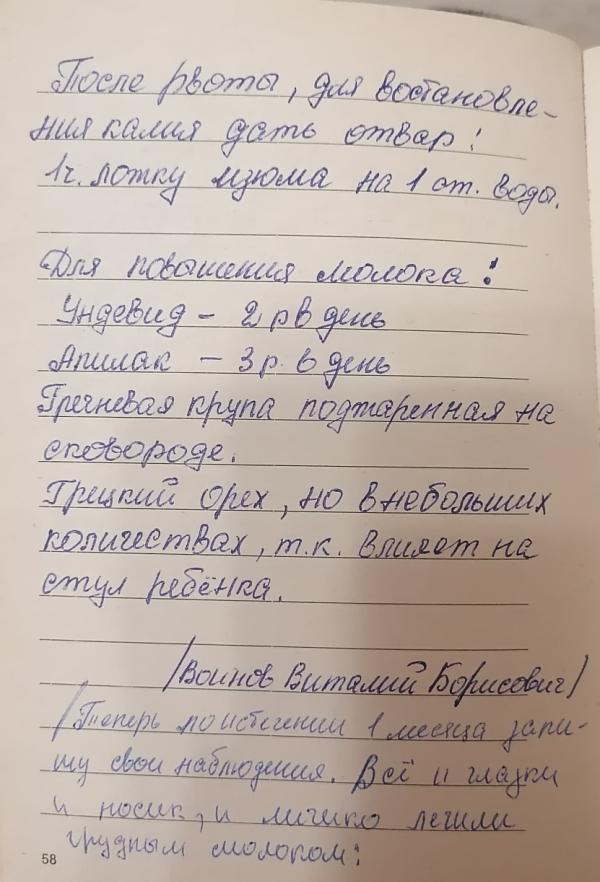 После рвоты, для востановле-
ния калия дать отвар:
1ч. ложку изюма на 1 ст. воды.
Для повышения молока:
Ундевид - 2 р в день
Апилак - 3 р. в день
Гречневая крупа поджаренная на
сковороде.
Грецкий орех, но в небольших
количествах, т.к. влияет на
стул ребёнка.
/Воинов Виталий Борисович/
/Теперь по истечении 1 месяца запи-
шу свои наблюдения. Всё и глазки
и носик, и личико лечили
грудным молоком:
58